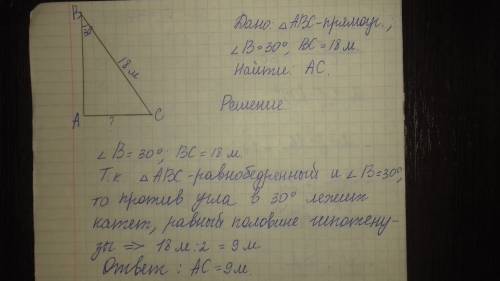 B
30
18 м
A
?
C
Дано: △ABC-прямоуг.,
∠B=30°, BC=18 м
Найти: AC.
Решение
∠B=30°; BC=18 м.
Т.к △ABC-равнобедренный и ∠B=30°,
то против угла в 30° лежит
катет, равный половине гипотену-
зы ⇒ 18 м:2 = 9 м
Ответ: AC=9 м.